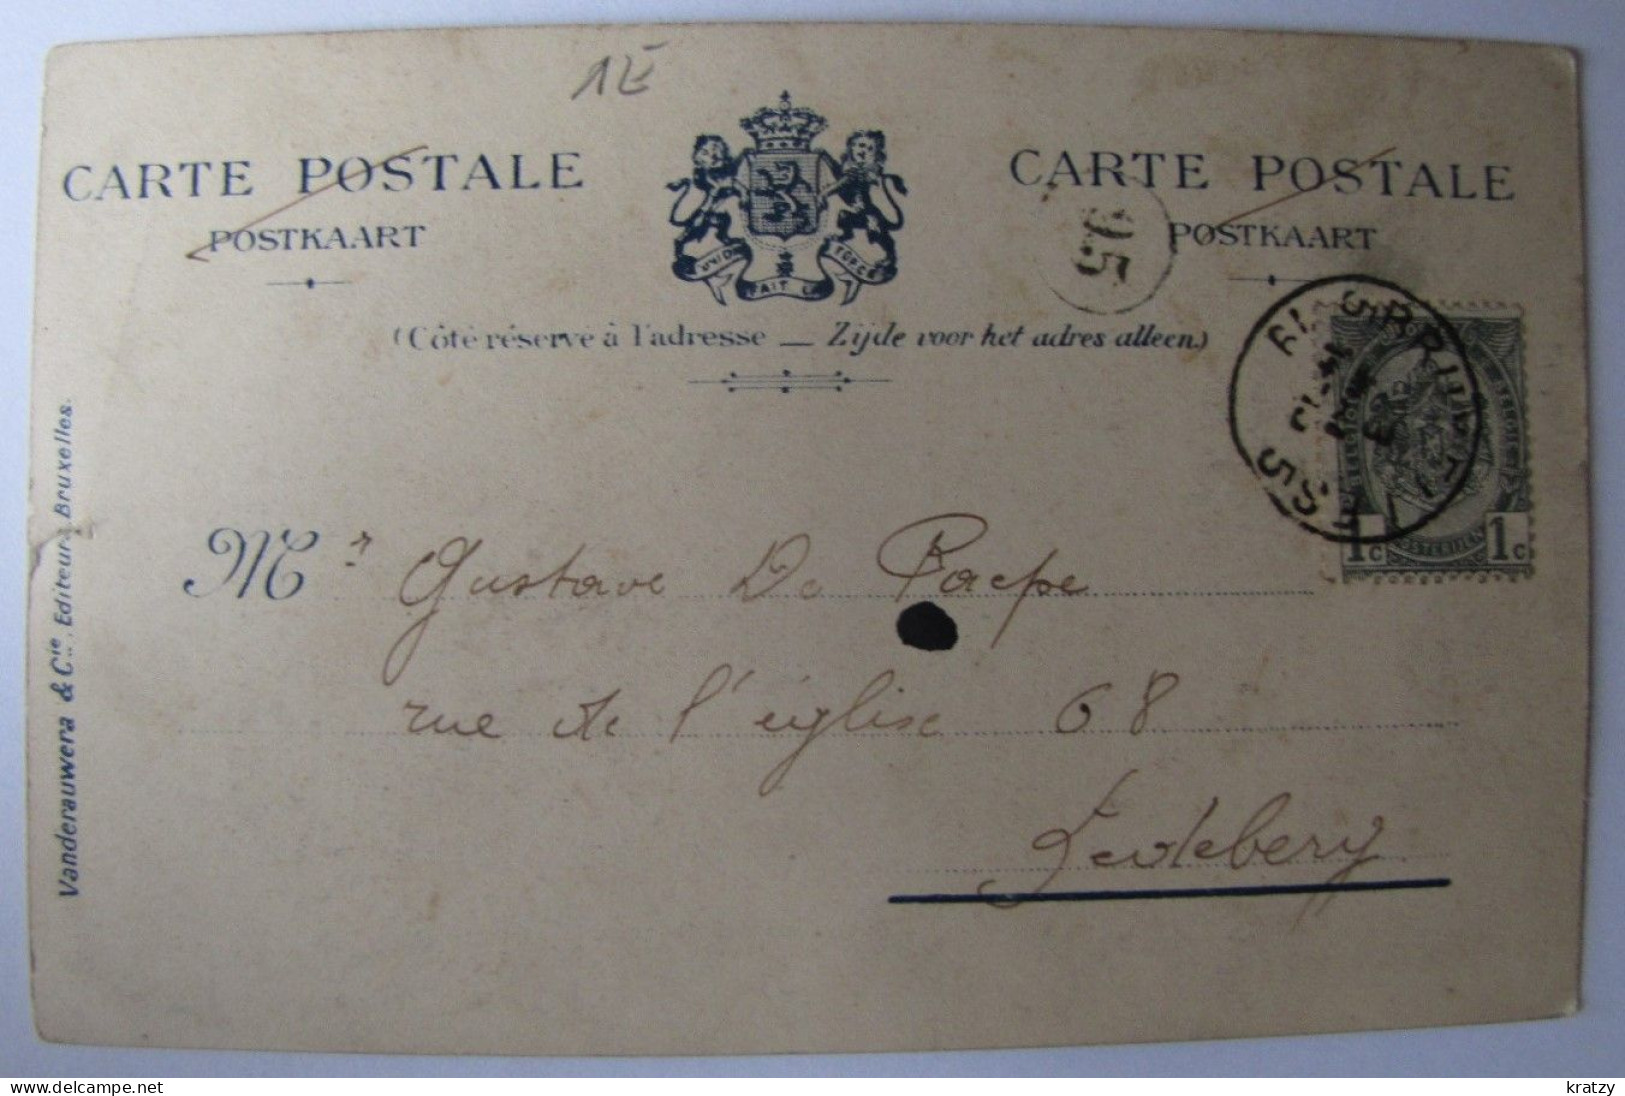 1 E
CARTE POSTALE
POSTKAART
CARTE POSTALE
POSTKAART
L'UNION FAIT LA FORCE
(Côté réservé à l'adresse — Zijde voor het adres alleen.)
Vanderauwera & Cie. Editeurs Bruxelles.
BELGIQUE
1c POSTERIJEN 1c
Mr Gustave De Paepe
rue de l'église 68
Ledeberg